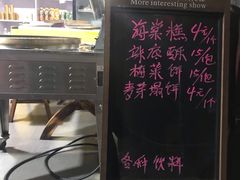 More interesting show
海棠糕 4元/个
袜底酥 15/包
梅菜饼 15/包
麦芽塌饼 4元/个
各种饮料